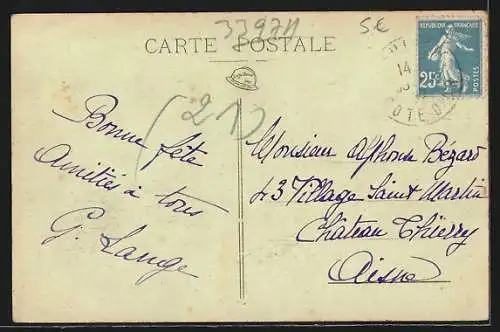 33971
5€
CARTE POSTALE
REPUBLIQUE FRANÇAISE
25c
POSTES
14
COTE D'OR
(21)
Bonne fête
Amitiés à tous
G. Lange
Monsieur Alphonse Bézard
43 Village Saint Martin
Château Thierry
Aisne